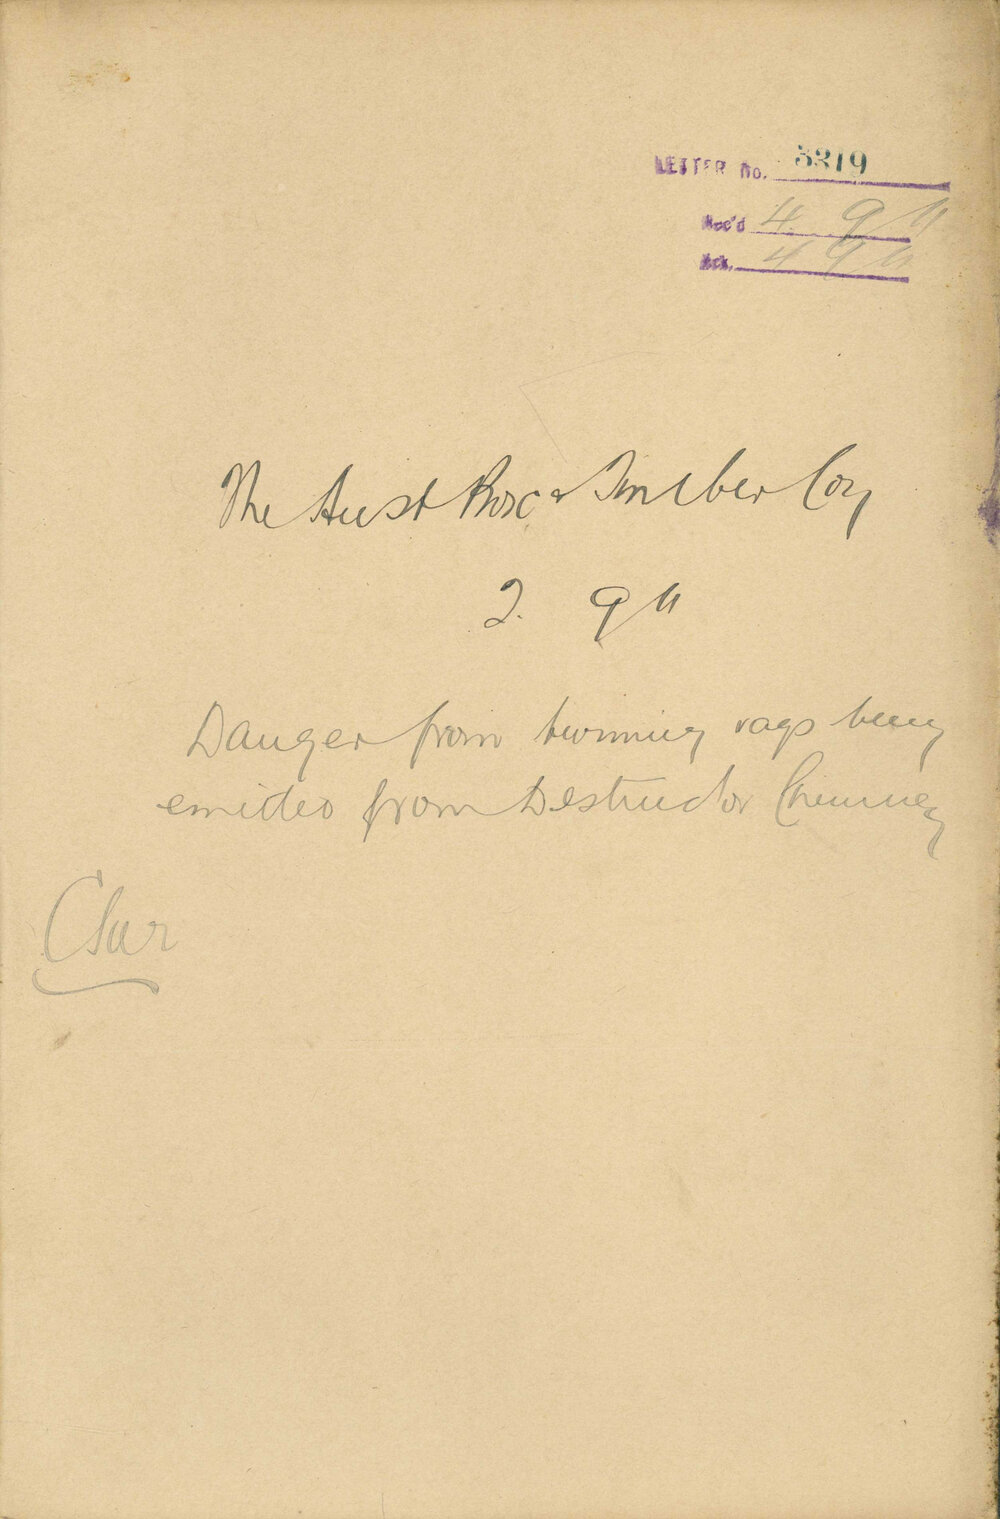 LETTER No. 5319
Rec'd 4. 9 11
Ack. 4 9 11
The Aust Box & Timber Coy
2. 9 11
Danger from burning rags being
emitted from Destructor Chimney